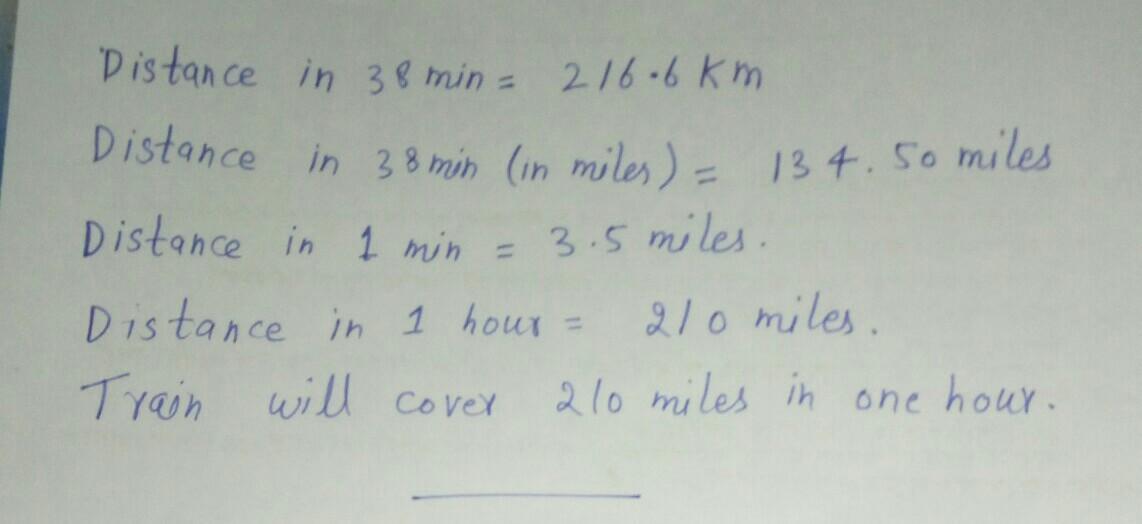 Distance in 38 min = 216.6 Km
Distance in 38 min (in miles) = 134.50 miles
Distance in 1 min = 3.5 miles.
Distance in 1 hour = 210 miles.
Train will cover 210 miles in one hour.